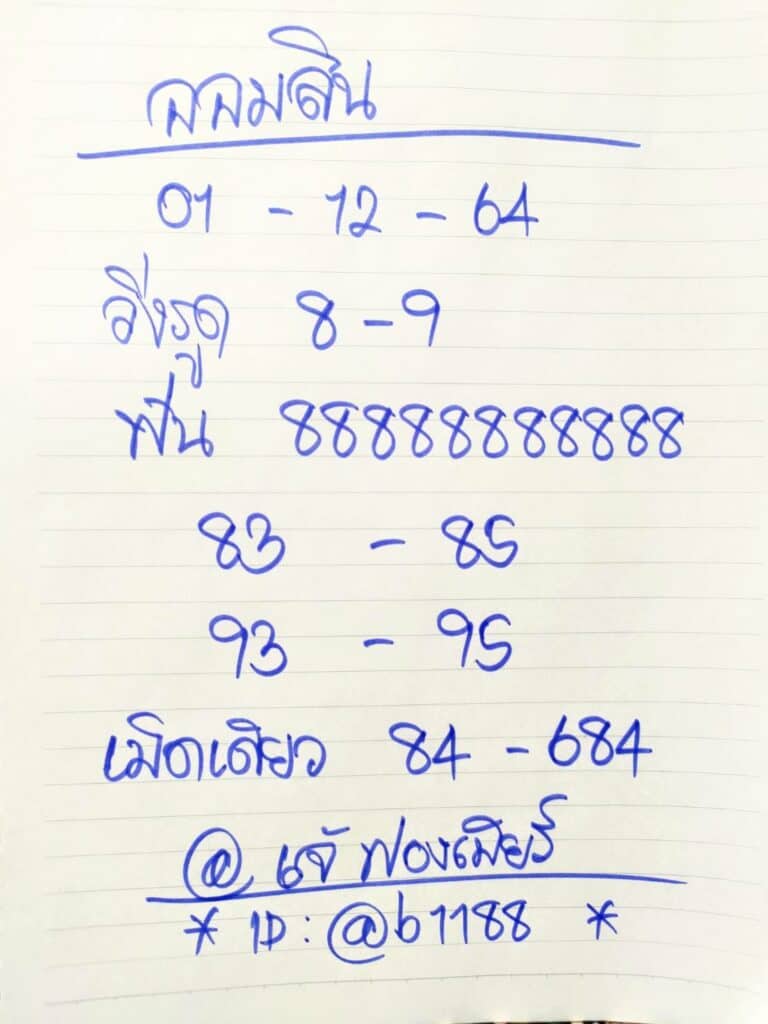 ออมสิน
01 - 12 - 64
วิ่งรูด 8 - 9
ฟัน 888888888888
83 - 85
93 - 95
เม็ดเดียว 84 - 684
@ เจ๊ ฟองเบียร์
* ID : @b1188 *